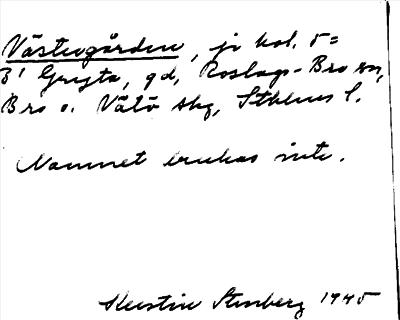 Västergården, jr kol. 5=
B¹ Gryta, gd, Roslags-Bro sn,
Bro o. Vätö skg, Sthlms l.
Namnet brukas inte.
Kerstin Stenberg 1945